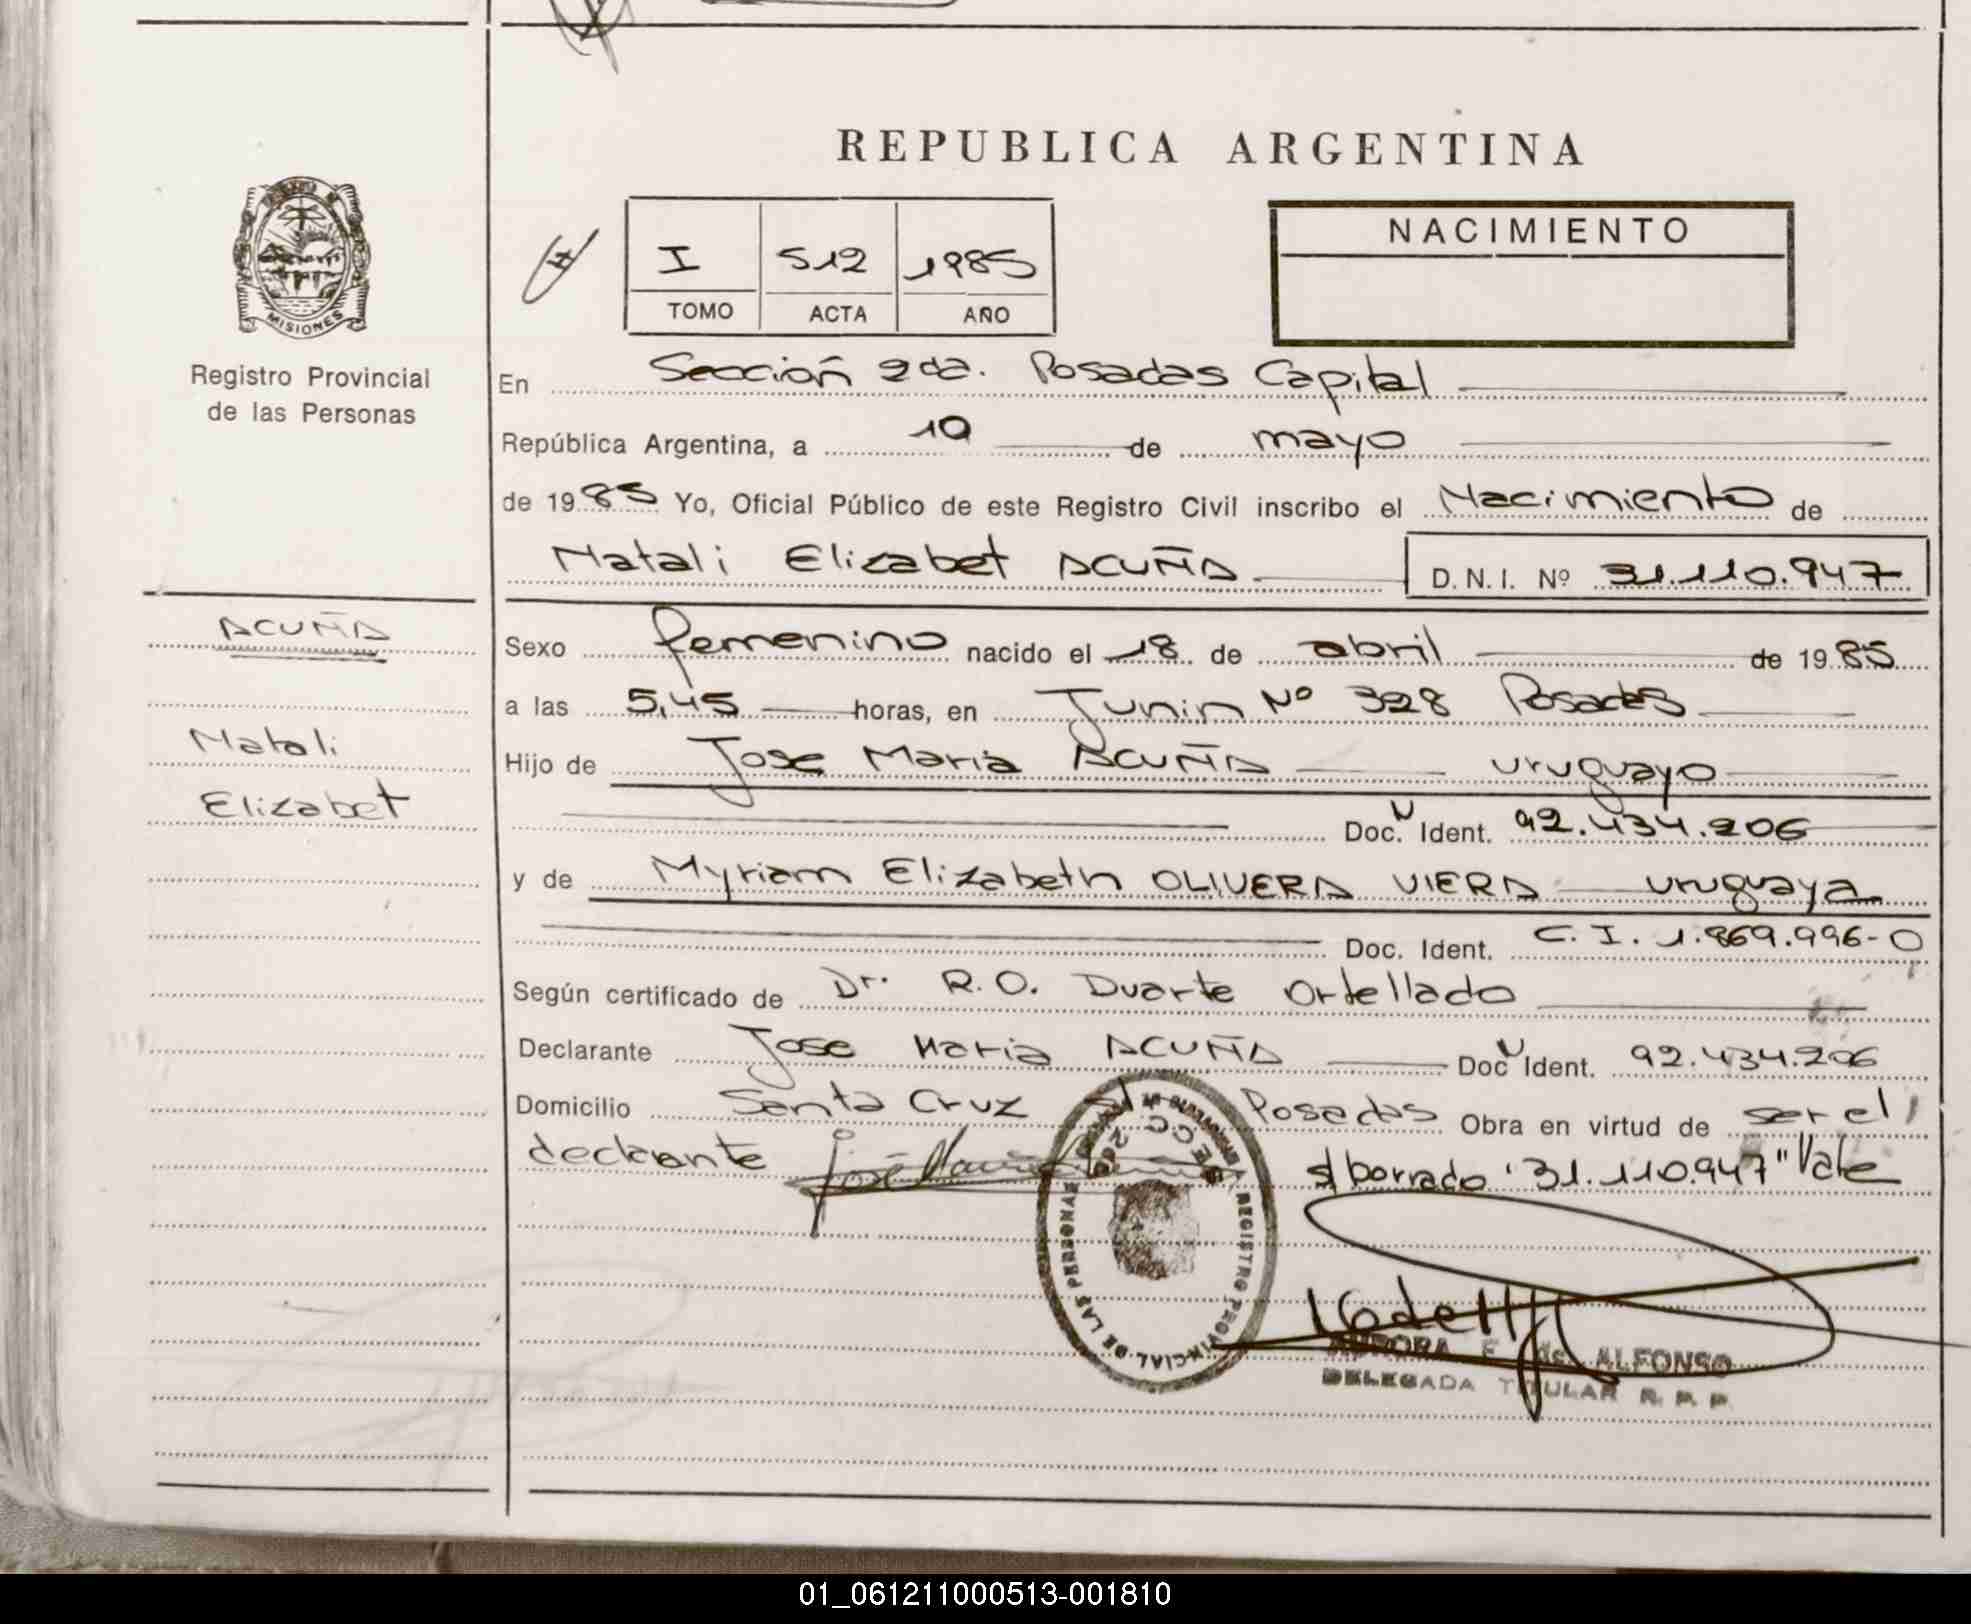 REPUBLICA ARGENTINA
MISIONES
Registro Provincial
de las Personas
I 512 1985
TOMO ACTA AÑO
NACIMIENTO
En Sección 2da. Posadas Capital
República Argentina, a 10 de mayo
de 1985 Yo, Oficial Público de este Registro Civil inscribo el Nacimiento de
Natali Elizabet ACUÑA D.N.I. Nº 31.110.947
ACUÑA
Natali
Elizabet
Sexo femenino nacido el 18 de abril de 1985
a las 5,45 horas, en Junin Nº 328 Posadas
Hijo de Jose Maria ACUÑA uruguayo
Doc. Ident. 92.434.206
y de Myriam Elizabeth OLIVERA VIERA uruguaya
Doc. Ident. C.I. 1.869.996-0
Según certificado de Dr. R.O. Duarte Ortellado
Declarante Jose Maria ACUÑA Doc Ident. 92.434.206
Domicilio Santa Cruz Posadas Obra en virtud de ser el
declarante José María
s/borrado "31.110.947" Vale
REGISTRO PROVINCIAL DE LAS PERSONAS
AURORA F. de ALFONSO
DELEGADA TITULAR R. P. P.
01_061211000513-001810